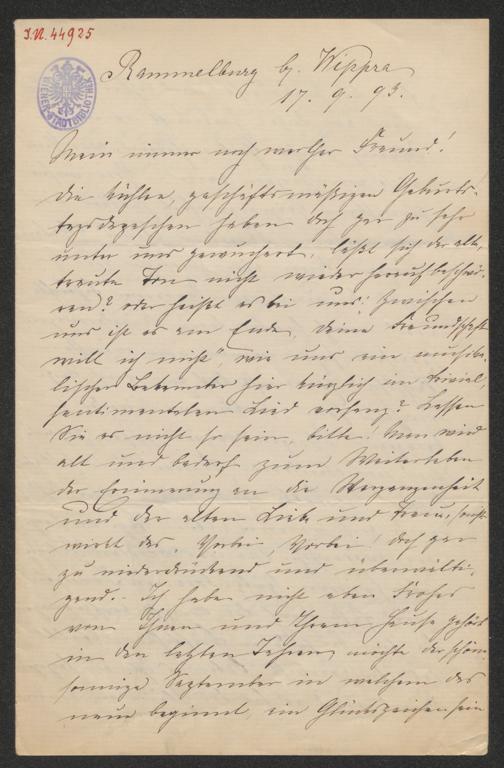 I.N. 44925
WIENER STADTBIBLIOTHEK
Rammelburg b. Wippra
17. 9. 93.
Mein immer noch werther Freund!
die kühlen, geschäftsmäßigen Geburts-
tagsdepeschen haben doch gar zu sehr
unter uns gewuchert, läßt sich der alte,
traute Ton nicht wieder heraufbeschwö-
ren? oder heißt es bei uns: zwischen
uns ist es am Ende, deine Freundschaft
will ich nicht" wie uns ein musika-
lischer Bekannter hier kürzlich im trivial,
sentimentalen Lied vorsang? Lassen
Sie es nicht so sein, bitte! Man wird
alt und bedarf zum Weiterleben
der Erinnerung an die Vergangenheit
und der alten Liebe und Treue, sonst
wirkt das „Vorbei, Vorbei" doch gar
zu niederdrückend und überwälti-
gend. Ich habe nicht eben Frohes
von Ihnen und Ihrem Hause gehört
in den letzten Jahren, möchte der schöne
sonnige September in welchem das
neue beginnt, ein Glückszeichen sein